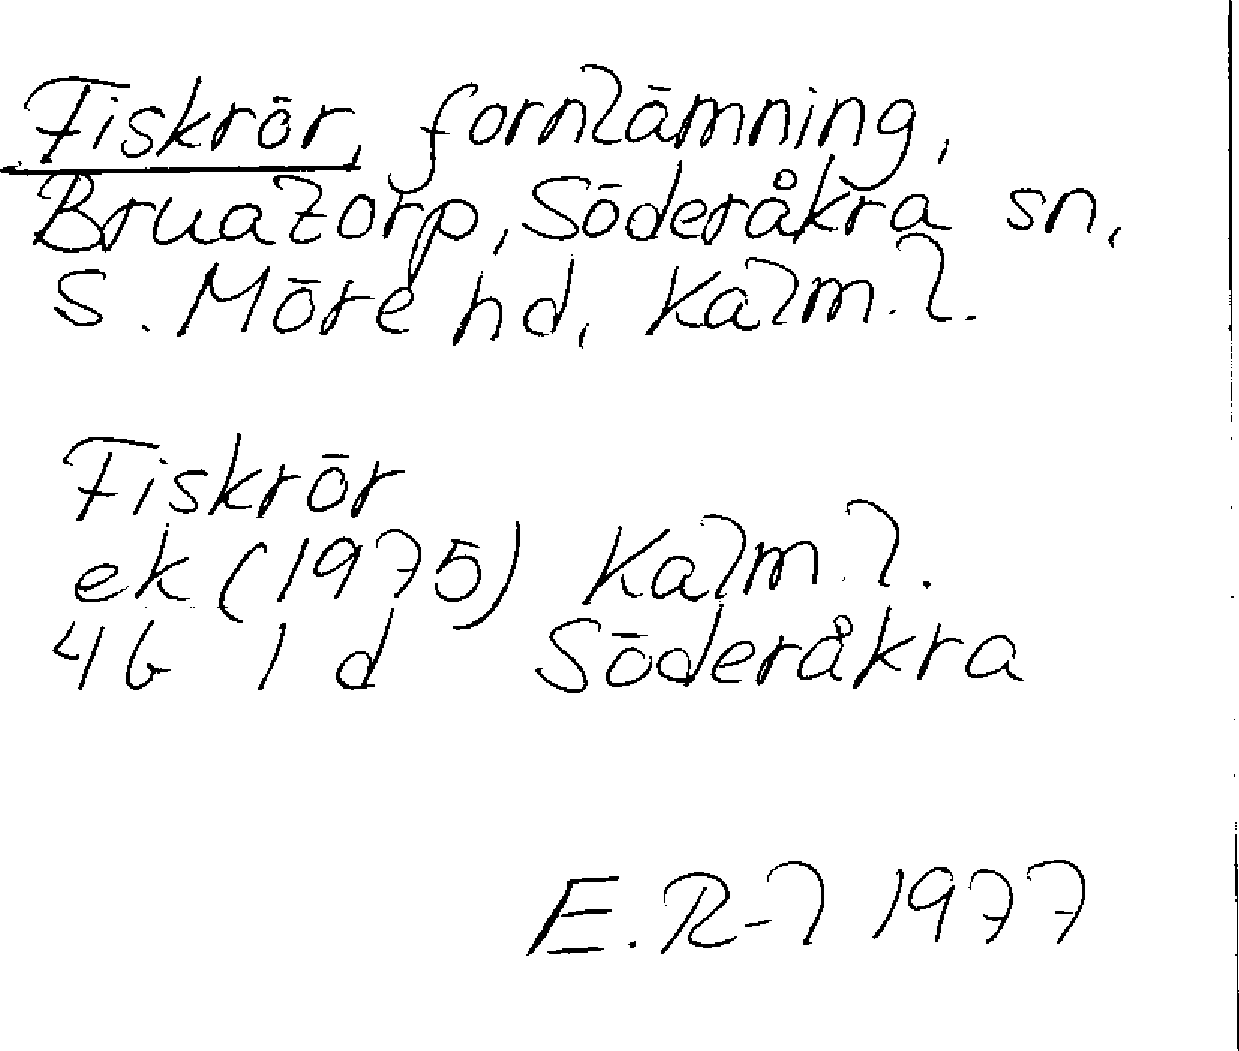 Fiskrör, fornlämning,
Bruatorp, Söderåkra sn,
S. Möre hd, Kalm. l.
Fiskrör
ek (1975) Kalm. l.
4G 1d Söderåkra
E. R-l 1977